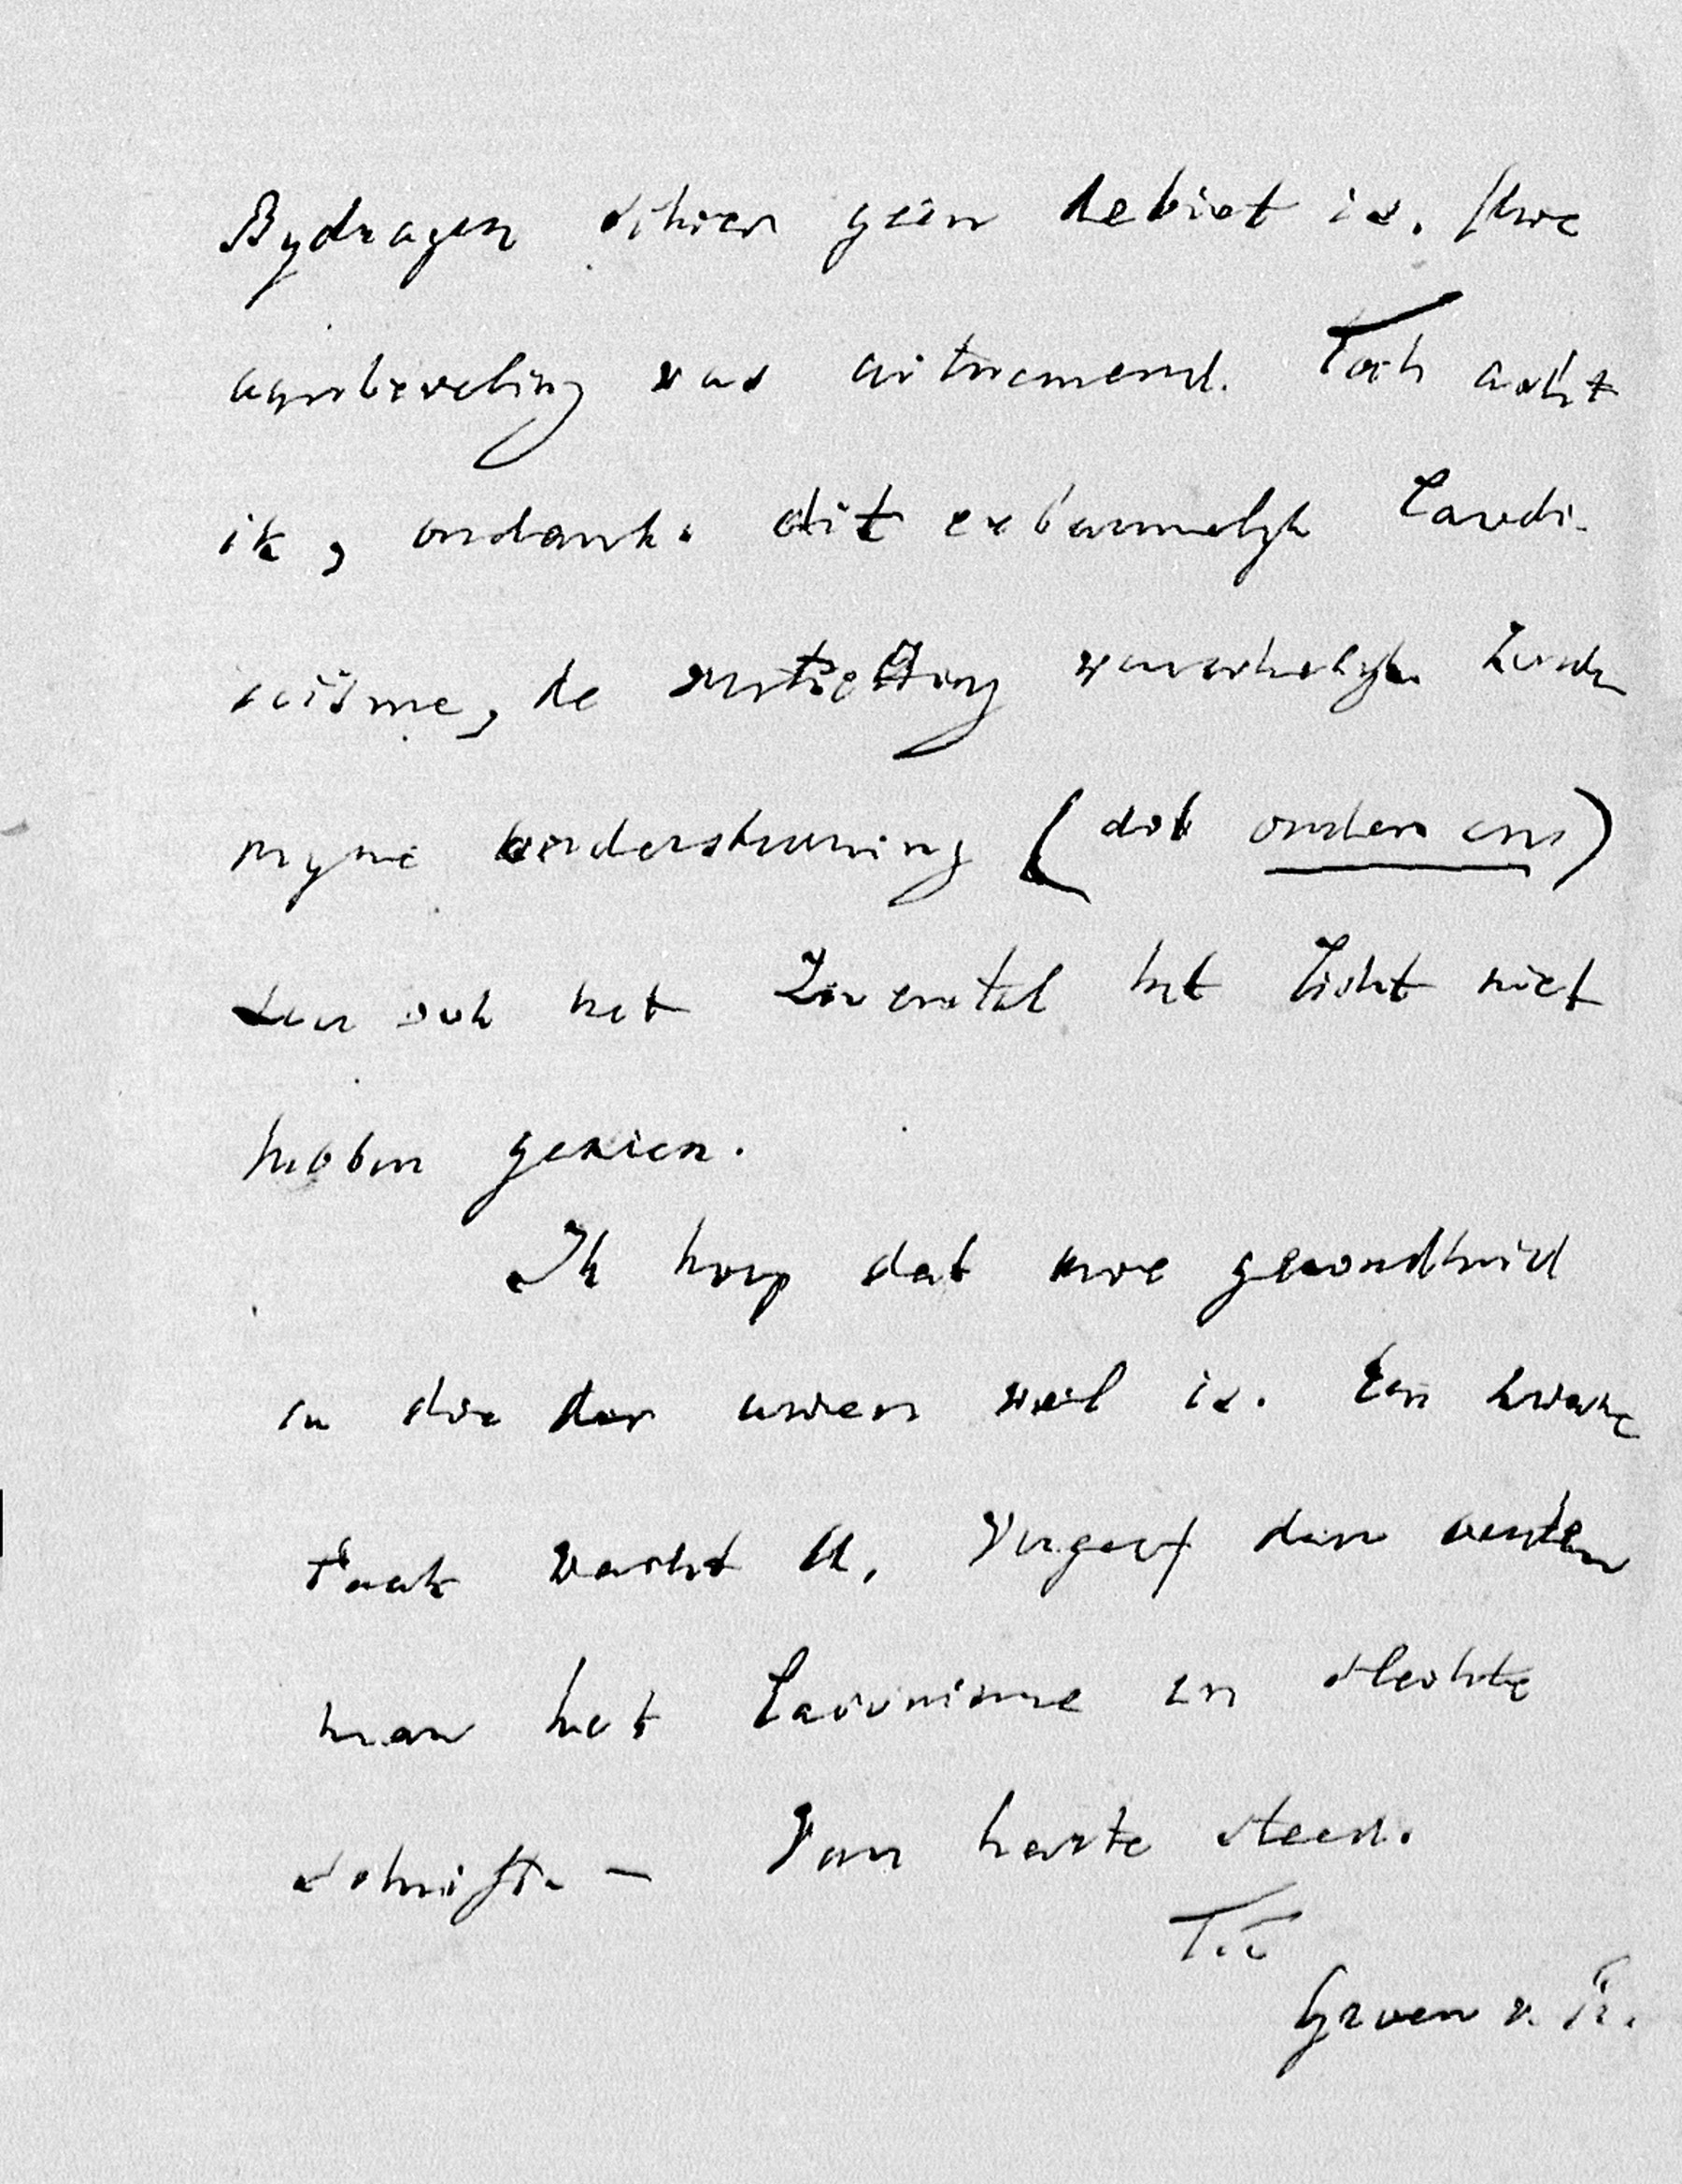 Bydragen schier geen debiet is. Uwe
aanbeveling was uitnemend. Toch acht
ik, ondanks dit erbarmelyk Laodi-
ceïsme, de waarschynlyk zonder
myne ondersteuning (dit onder ons)
zou ook het Zevental het licht niet
hebben gezien.
Ik hoop dat uwe gezondheid
en die der uwen wel is. Een zware
taak wacht U. Vergeef den ouden
man het laconisme en slechte
schrift. — Van harte steeds.
T.t.
Groen v. Pr.